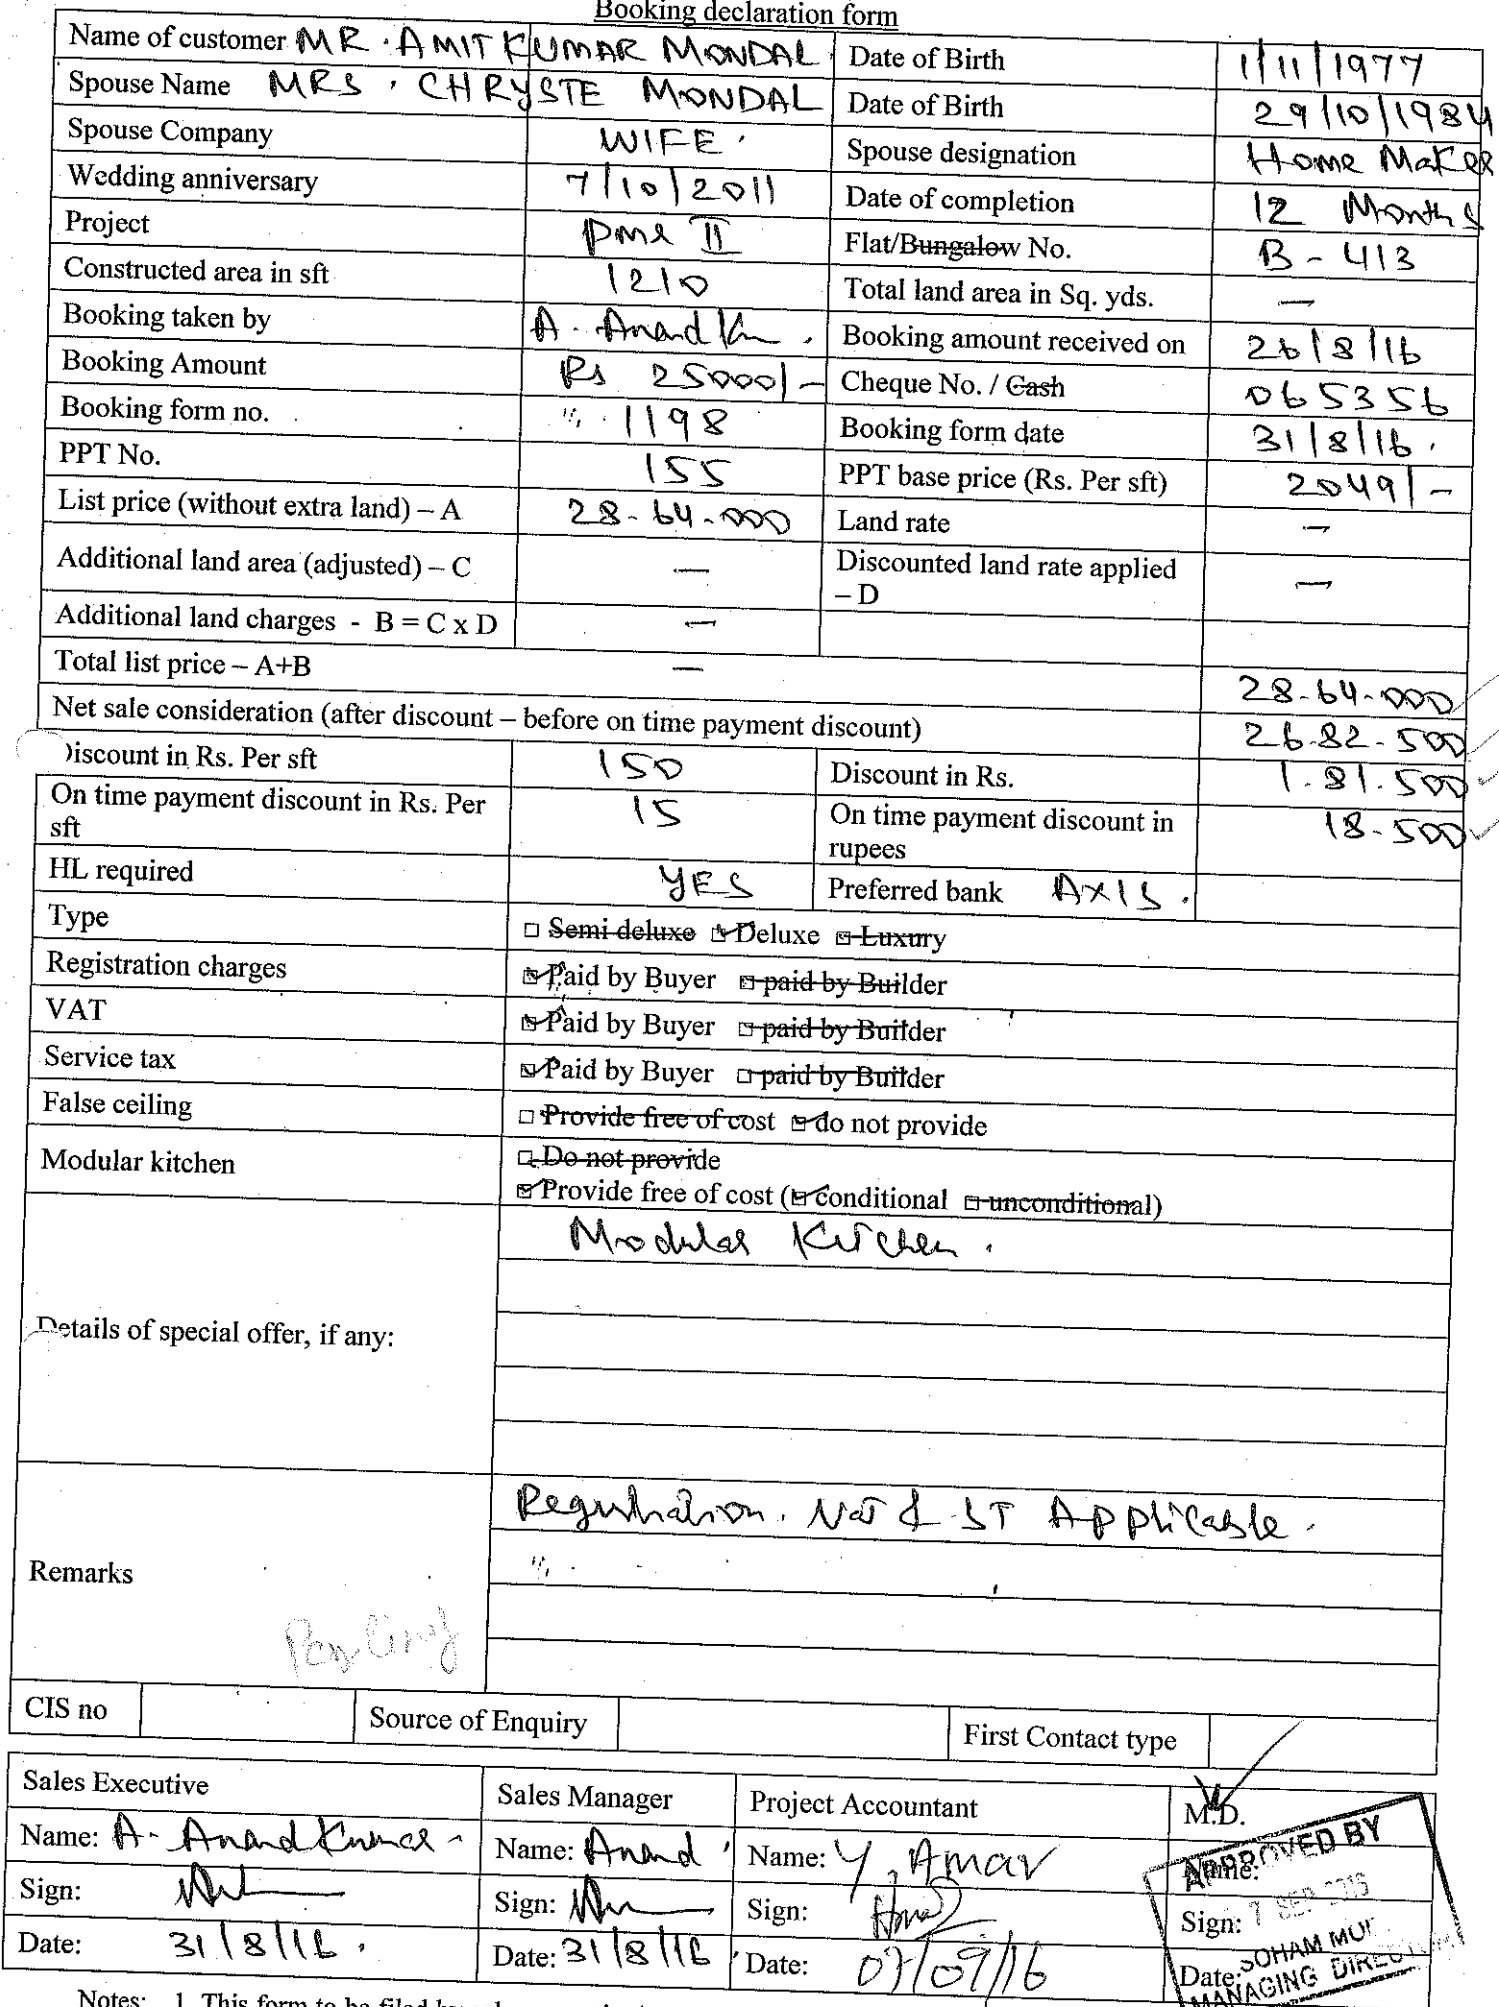 Booking declaration form
Name of customer MR. AMIT KUMAR MONDAL Date of Birth 1/11/1977
Spouse Name MRS. CHRYSTE MONDAL Date of Birth 29/10/1984
Spouse Company WIFE. Spouse designation Home Maker
Wedding anniversary 7/10/2011 Date of completion 12 Months
Project PMR II Flat/Bungalow No. B-413
Constructed area in sft 1210 Total land area in Sq. yds. —
Booking taken by A. Anand Booking amount received on 26/8/16
Booking Amount Rs 25000/- Cheque No. / Cash 065356
Booking form no. 1198 Booking form date 31/8/16.
PPT No. 155 PPT base price (Rs. Per sft) 2049/-
List price (without extra land) – A 28-64-000 Land rate —
Additional land area (adjusted) – C — Discounted land rate applied – D —
Additional land charges - B = C x D —
Total list price – A+B — 28-64-000
Net sale consideration (after discount – before on time payment discount) 26-82-500
Discount in Rs. Per sft 150 Discount in Rs. 1.81.500
On time payment discount in Rs. Per sft 15 On time payment discount in rupees 18-500
HL required YES Preferred bank AXIS.
Type □ Semi deluxe ☑ Deluxe □ Luxury
Registration charges ☑ Paid by Buyer □ paid by Builder
VAT ☑ Paid by Buyer □ paid by Builder
Service tax ☑ Paid by Buyer □ paid by Builder
False ceiling □ Provide free of cost ☑ do not provide
Modular kitchen □ Do not provide
☑ Provide free of cost (☑ conditional □ unconditional)
Modular Kitchen.
Details of special offer, if any:
Registration. VAT & ST Applicable.
Remarks
Pending
CIS no Source of Enquiry First Contact type
Sales Executive Sales Manager Project Accountant M.D.
Name: A. Anand Kumar Name: Anand Name: Y. Amar Name:
Sign: Sign: Sign: Sign:
Date: 31/8/16. Date: 31/8/16 Date: 07/09/16 Date:
APPROVED BY
7 SEP 2016
SOHAM
MANAGING DIRECTOR
Notes: 1. This form to be filed